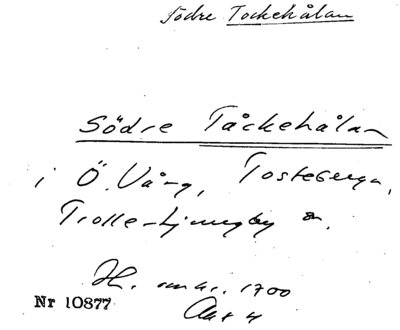 Södre Tockehålan
Södre Tåckehålan
i Ö. Vång, Tosteberga,
Trolle-Ljungby
H. omkr. 1700
Nr 10877 Akt 4